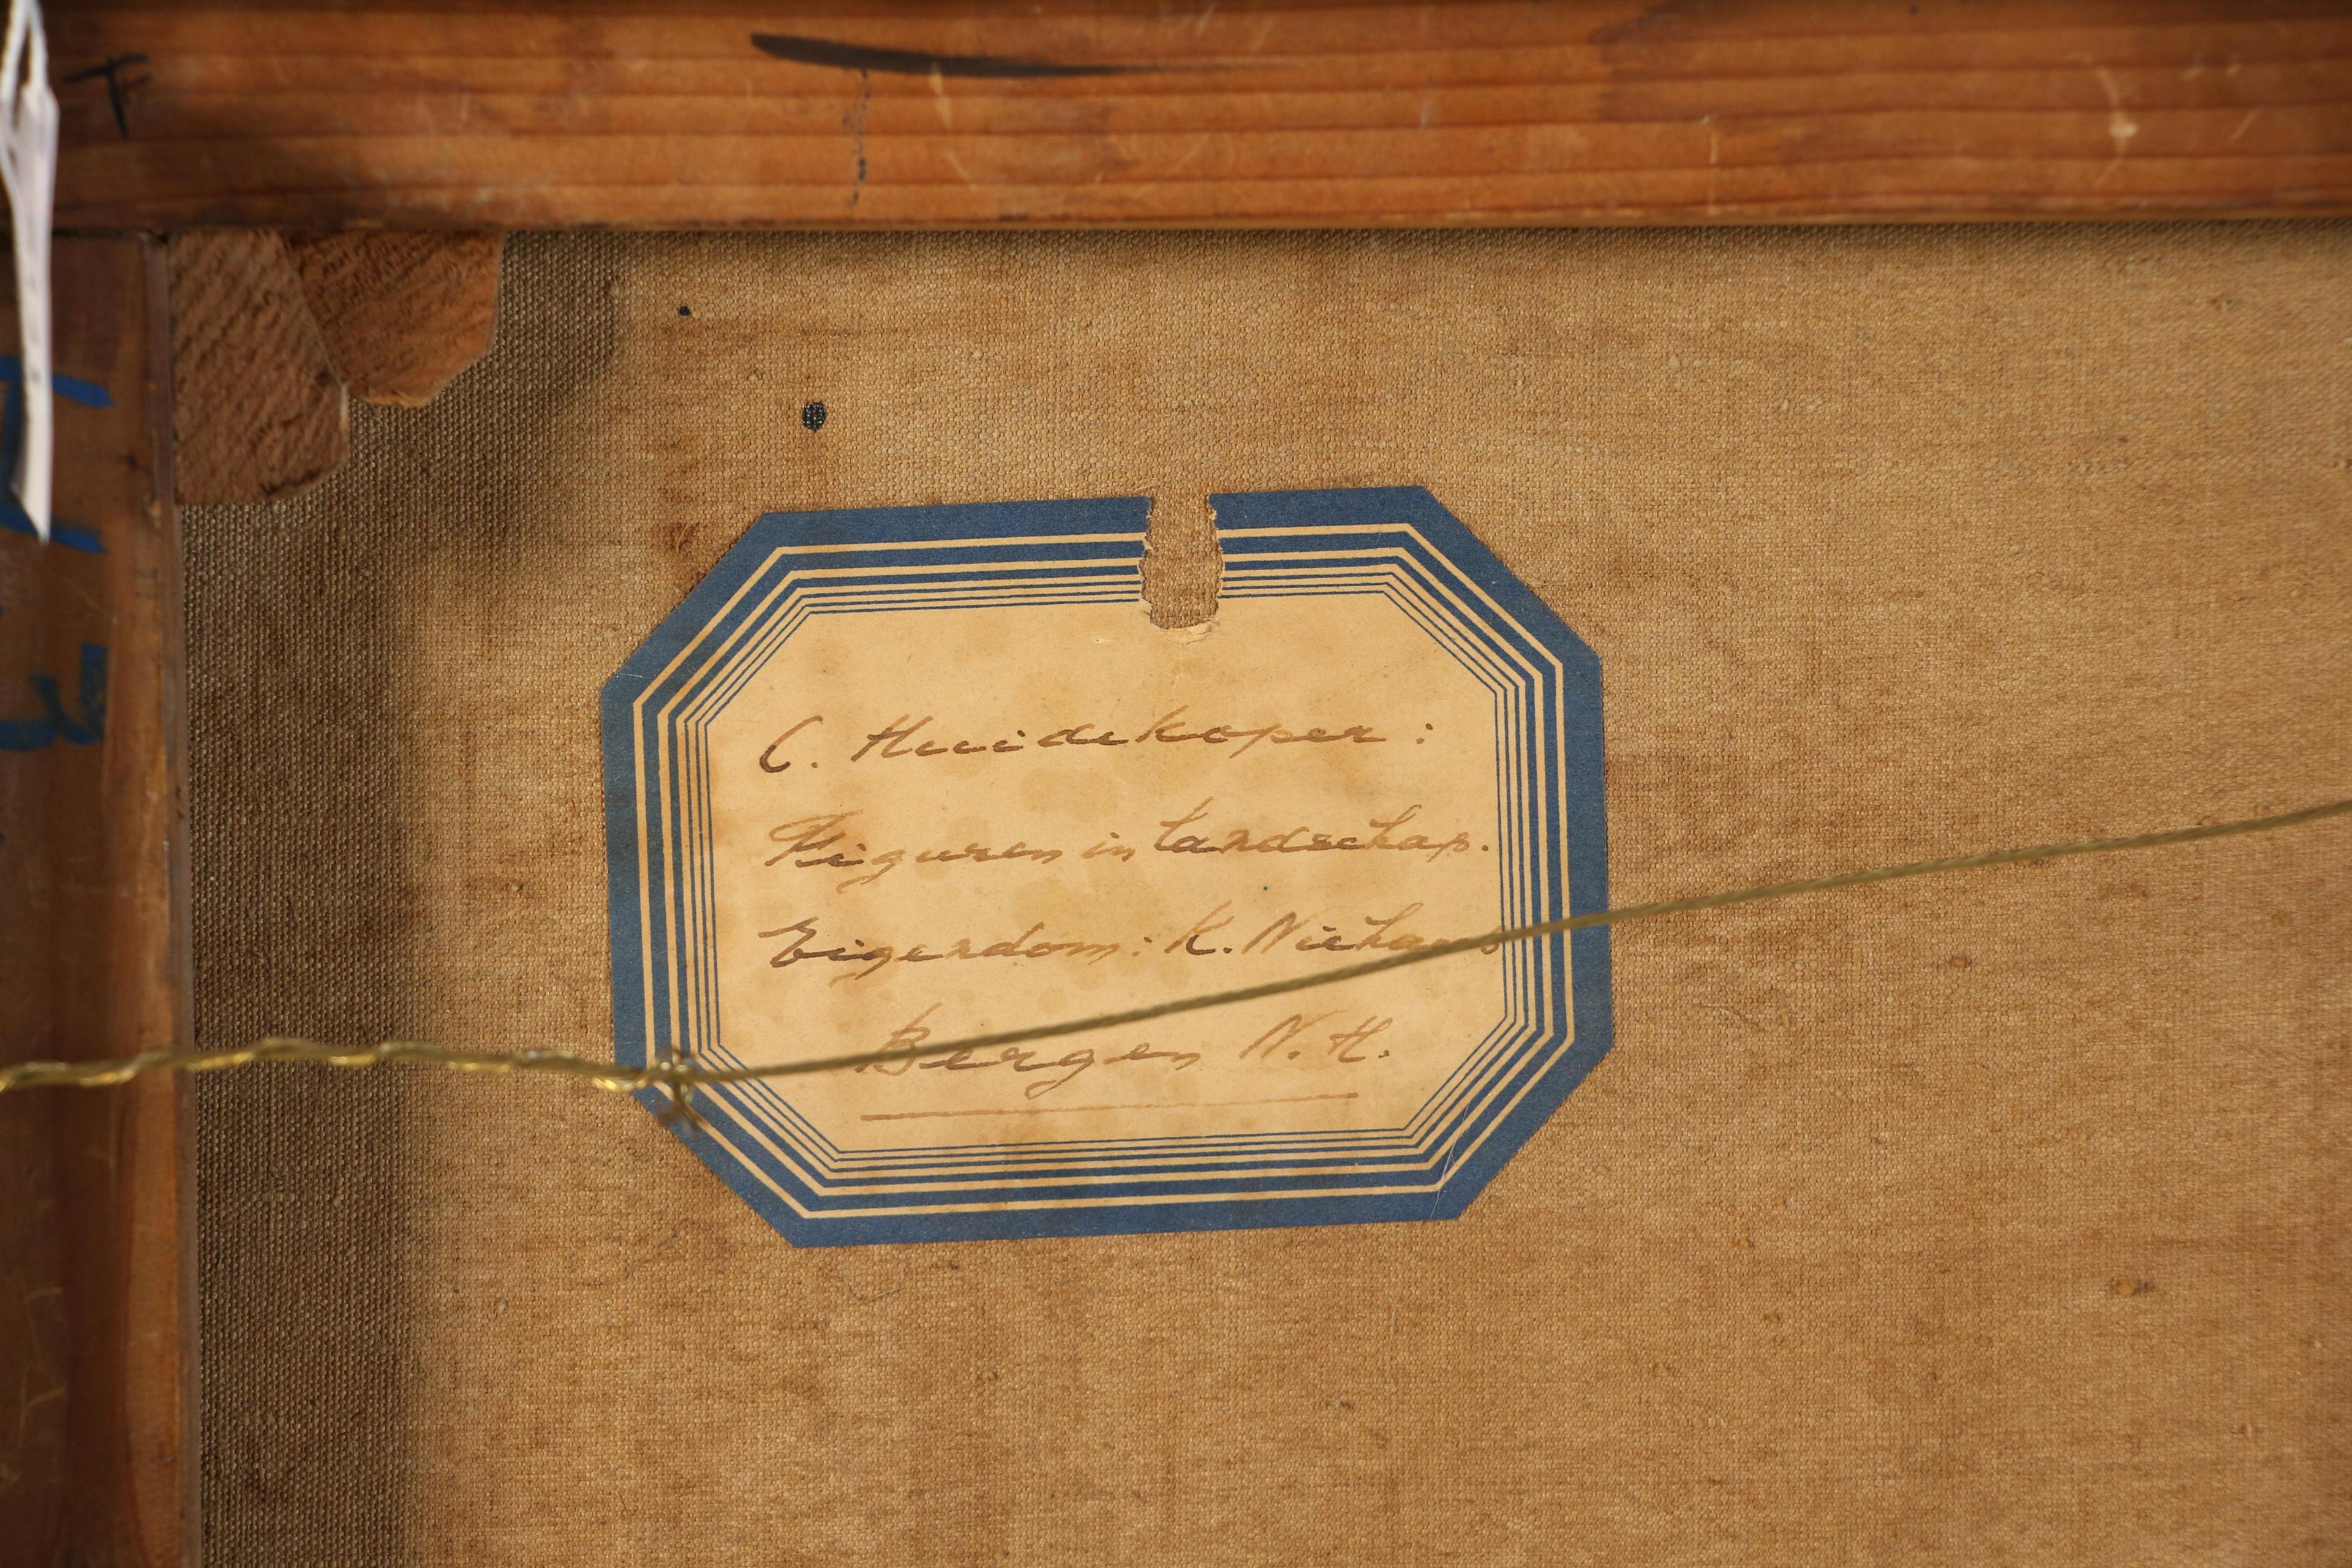 C. Huidekoper:
Figuren in landschap.
Eigendom: K. Niehaus
Bergen N.H.